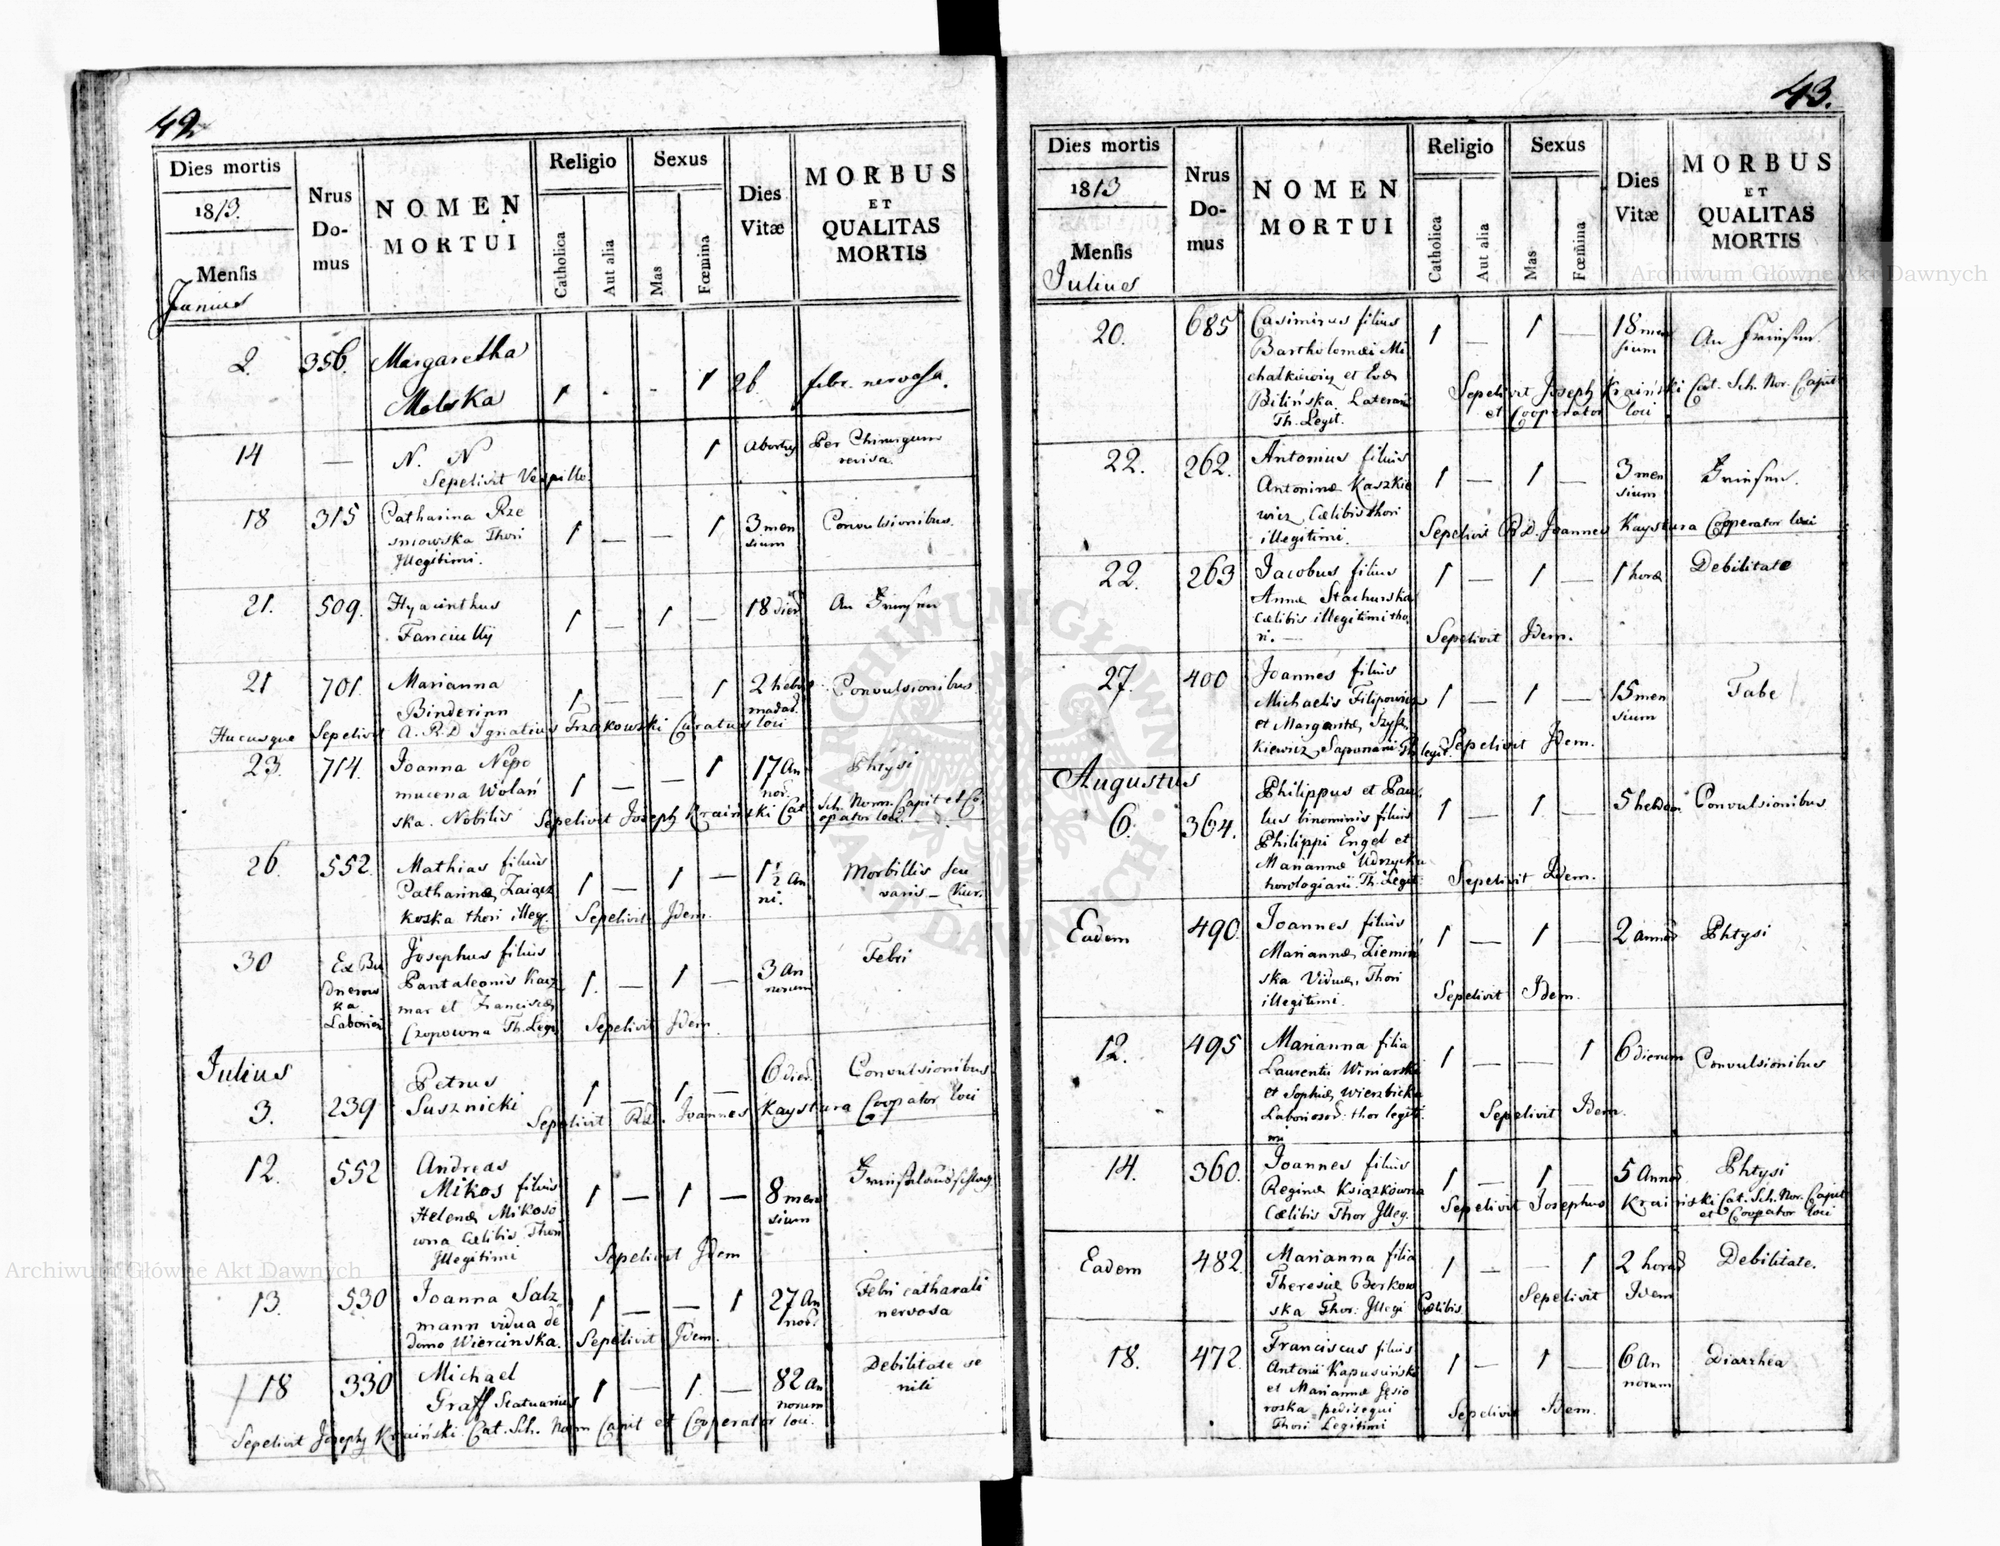 42
Dies mortis
1813.
Mensis
Junius
Nrus
Do-
mus
NOMEN
MORTUI
Religio
Catholica
Aut alia
Sexus
Mas
Fœmina
Dies
Vitæ
MORBUS
ET
QUALITAS
MORTIS
2. 356. Margaretha
Melska 1 . - 1 26 febr. nervosa.
14 — N. N 1 Abortus Per Chirurgum
revisa.
Sepelivit Vespillo.
18 315 Catharina Rze
sniowska Thori
Illegitimi. 1 — — 1 3 men
sium Convulsionibus.
21. 509. Hyacinthus
Fanciulli 1 — 1 — 18 dier An Frinsen
21 701. Marianna
Binderinn 1 — — 1 2 hebdo
madar. Convulsionibus
Hucusque Sepelivit A. R. D Ignatius Trzakowski Curatus loci
23. 714. Joanna Nepo
mucena Wolań
ska. Nobilis 1 — — 1 17 An
nor. Phtysi
Sepelivit Joseph Kraiński Cat. Sch. Norm. Capit et Co
opator loci.
26. 552. Mathias filius
Catharinæ Zaiącz
koska thori illeg. 1 — 1 — 1 1/2 An
ni. Morbillis seu
varis — Kur.
Sepelivit Idem.
30 Ex Bu
dnerow
ka
Laborios Josephus filius
Pantaleonis Kacz
mar et Franciscæ
Czopowna Th. Legi. 1. — 1 — 3 An
norum Febri
Sepelivit Idem.
Julius
3. 239 Petrus
Susznicki 1 — 1 — 6 dier. Convulsionibus
Sepelivit R.D. Joannes Kaystura Coopator loci
12. 552 Andreas
Mikos filius
Helenæ Mikoso
wna Cælibis Thori
Illegitimi 1 — 1 — 8 men
sium
Sepelivit Idem
13. 530 Joanna Salz
mann vidua de
domo Wiercinska. 1 — — 1 27 An
nor. Febri catharali
nervosa
Sepelivit Idem.
18 330 Michael
Graff Statuarius 1 — 1. — 82 An
norum Debilitate se
nili
Sepelivit Joseph Kraiński Cat. Sch. Norm Capit et Cooperator loci.
43.
Dies mortis
1813
Mensis
Julius
Nrus
Do-
mus
NOMEN
MORTUI
Religio
Catholica
Aut alia
Sexus
Mas
Fœmina
Dies
Vitæ
MORBUS
ET
QUALITAS
MORTIS
20. 685 Casimirus filius
Bartholomæi Mi
chalkiewicz et Evæ
Bilińska Laterarii
Th. Legit. 1 — 1 — 18 men
sium An Frinsen.
Sepelivit Joseph Kraiński Cat. Sch. Nor. Caput
et Cooperator loci
22. 262. Antonius filius
Antoninæ Kaszkie
wicz Cælibis thori
illegitimi. 1 — 1 — 3 men
sium Frinsen.
Sepelivit R. D. Joannes Kaystura Cooperator loci
22. 263 Jacobus filius
Annæ Stachurska
Cælibis illegitimi tho
ri. — 1 — 1 — 1 horæ Debilitate
Sepelivit Idem.
27. 400 Joannes filius
Michaelis Filipowicz
et Margaritæ Szyf
kiewicz Saponarii Th legit. 1 — 1 — 15 men
sium Tabe
Sepelivit Idem.
Augustus
6. 364. Philippus et Pau
lus binominis filius
Philippi Engel et
Mariannæ Udrzycka
horologiarii. Th. Legit. 1 — 1 — 5 hebdom. Convulsionibus
Sepelivit Idem.
Eadem 490. Joannes filius
Mariannæ Ziemiń
ska Viduæ, Thori
illegitimi. 1 — 1 — 2 annor Phtysi
Sepelivit Idem.
12. 495 Marianna filia
Laurentii Winiarski
et Sophiæ Wierzbicka
Laborioso. thor legiti
mi 1 — — 1 6 dierum Convulsionibus
Sepelivit Idem.
14. 360. Joannes filius
Reginæ Książkówna
Cælibis Thor Illeg. 1 — 1 — 5 Annor Phtysi
Sepelivit Josephus Krainski Cat. Sch. Nor. Caput
et Coopator loci
Eadem 482. Marianna filia
Theresiæ Borkow
ska Thor: Illegi Cælibis. 1 — — 1 2 horar Debilitate.
Sepelivit Idem
18. 472. Franciscus filius
Antonii Kapusiński
et Mariannæ Gęsio
roska pedisequi
Thori Legitimi 1 — 1 — 6 An
norum Diarrhea
Sepelivit Idem.
Archiwum Główne Akt Dawnych
Archiwum Główne Akt Dawnych
ARCHIWUM GŁÓWNE AKT DAWNYCH